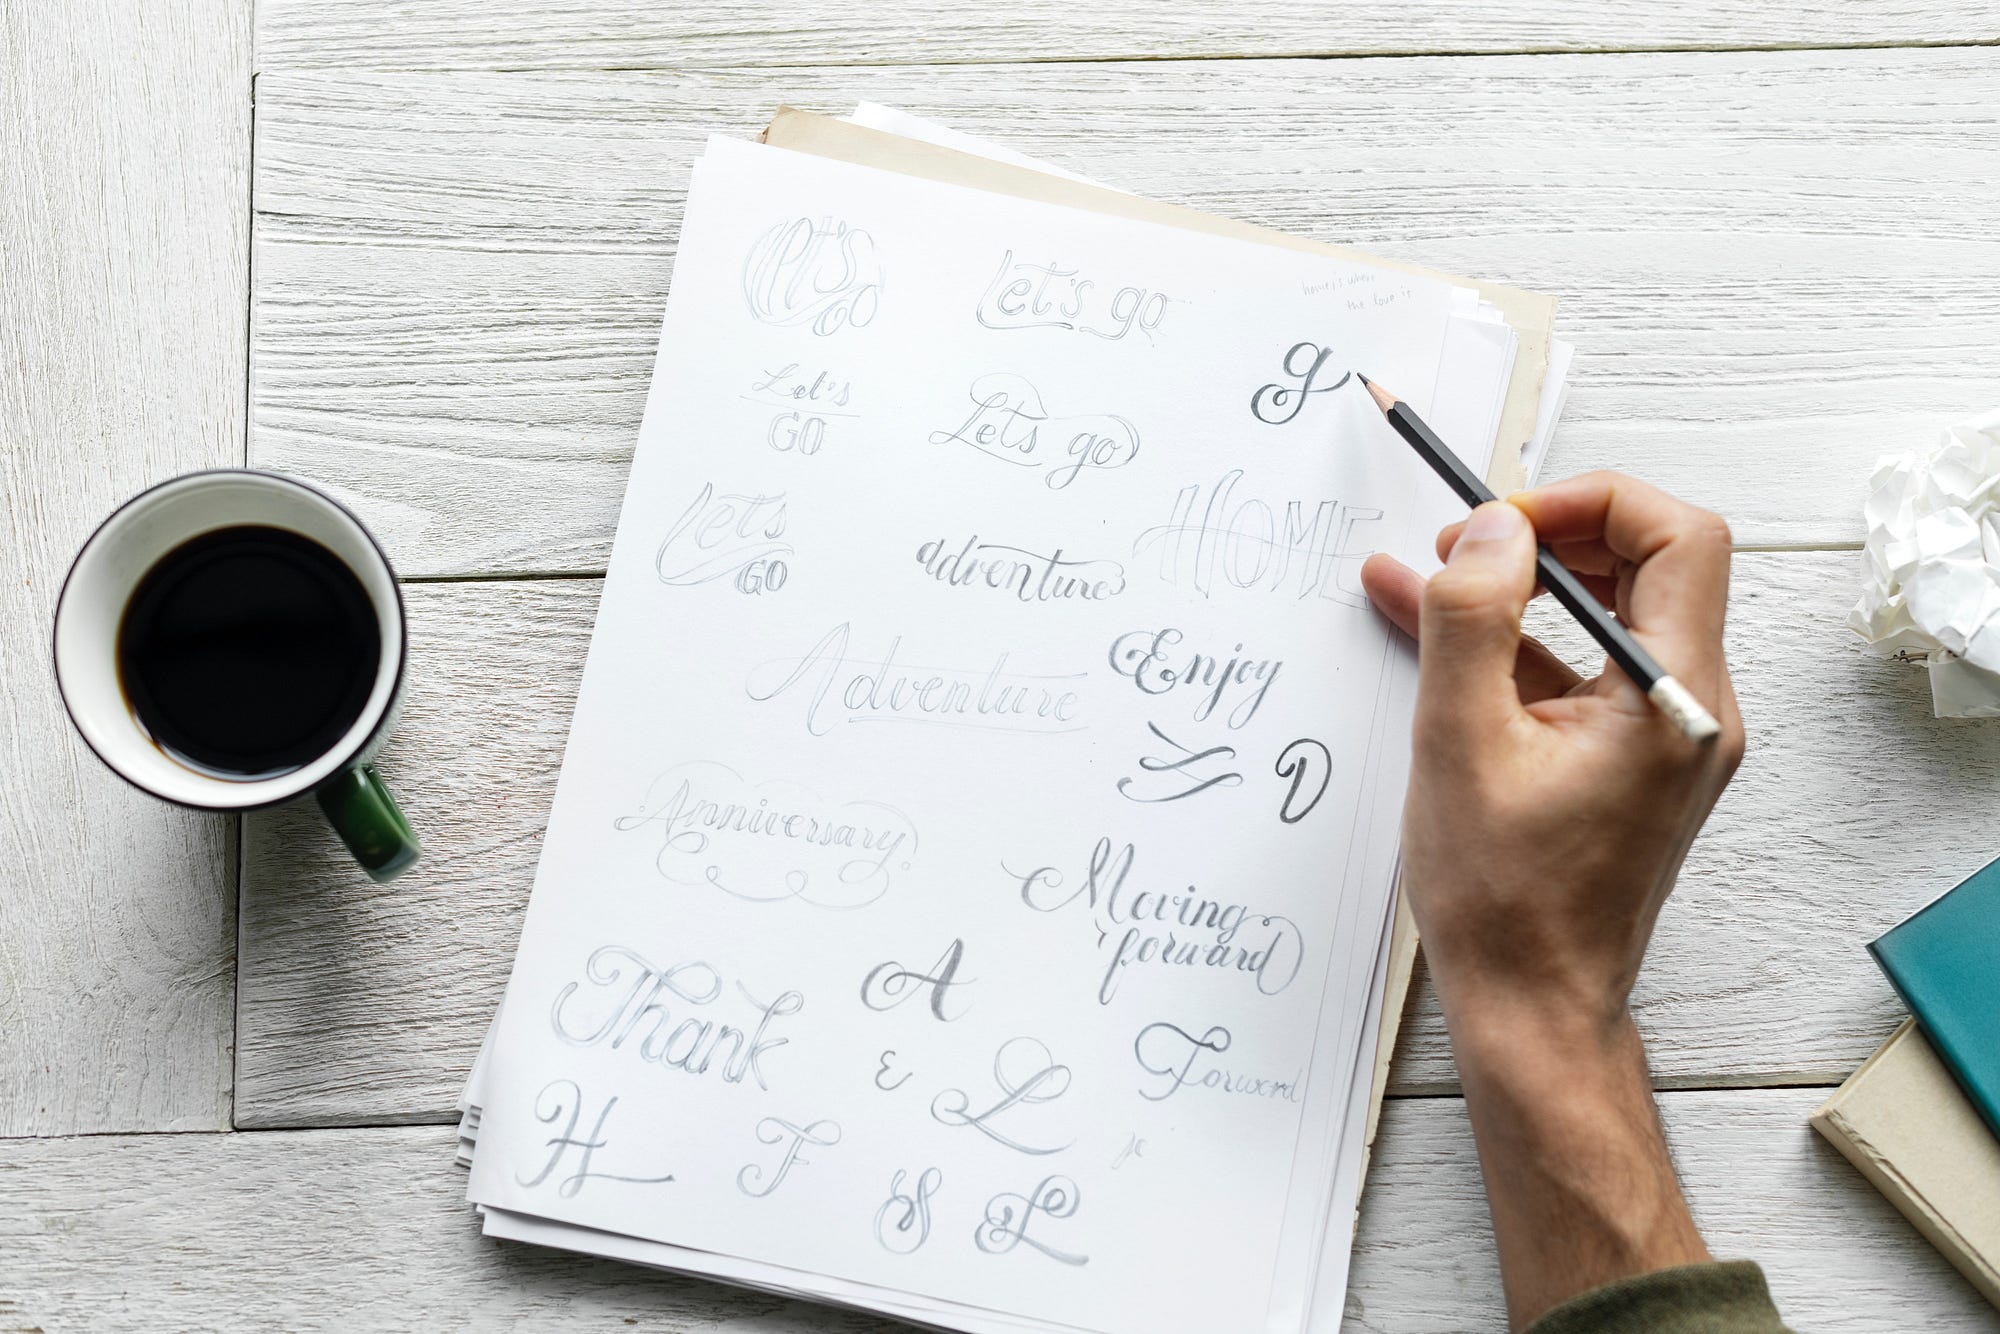 Let's
GO
Let's go
home is where
the love is
g
Let's
GO
Lets go
Lets
GO
adventure
HOME
Adventure
Enjoy
D
Anniversary
Moving
forward
Thank
A
&
L
Forward
H
F
S
L